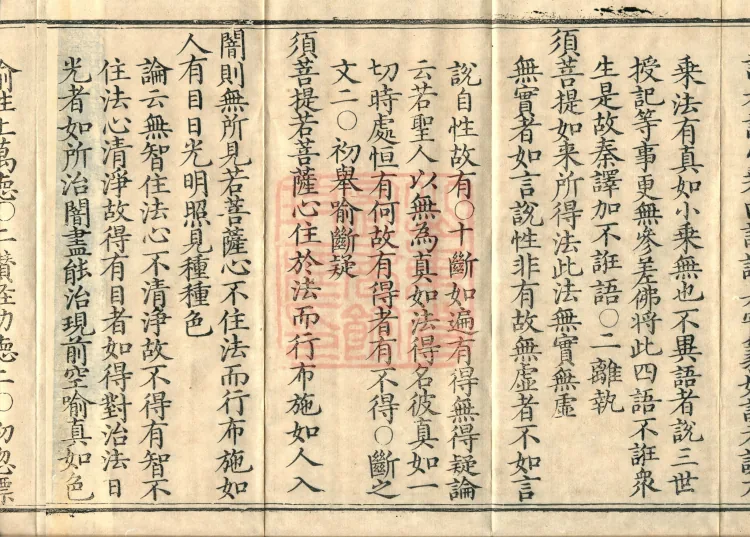 乘法有真如小乘無也不異語者說三世
授記等事更無參差佛將此四語不誑衆
生是故秦譯加不誑語○二離執
須菩提如来所得法此法無實無虛
無實者如言說性非有故無虛者不如言
說自性故有○十斷如遍有得無得疑論
云若聖人以無為真如法得名彼真如一
切時處恒有何故有得者有不得○斷之
文二○初舉喻斷疑
須菩提若菩薩心住於法而行布施如人入
闇則無所見若菩薩心不住法而行布施如
人有目日光明照見種種色
論云無智住法心不清淨故不得有智不
住法心清淨故得有目者如得對治法日
光者如所治闇盡能治現前空喻真如色
喻性上萬德○二讚經功德二○初總標